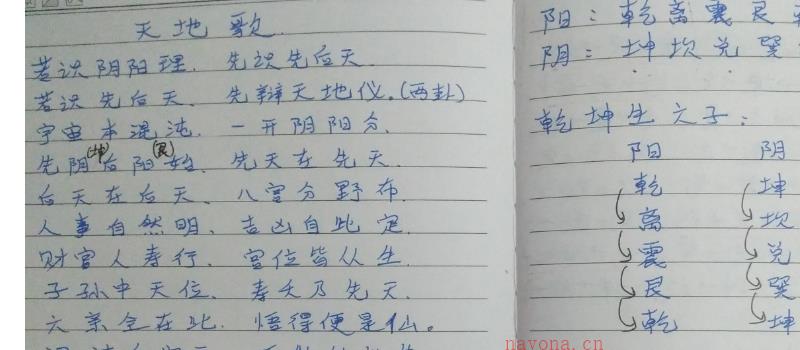 天地歌
若识阴阳理、先识先后天.
若识先后天、先辩天地仪。(两卦)
宇宙本混沌、一开阴阳分.
先阴(坤)后阳(艮)始、先天在先天.
后天在后天、八宫分野布
人事自然明、吉凶自此定.
财官人寿行、宫位皆从生.
子孙中天位、寿夭乃先天.
六亲全在此、悟得便是仙。
阳：乾离震艮
阴：坤坎兑巽
乾坤生六子：
阳 阴
乾 坤
离 坎
震 兑
艮 巽
乾 坤
navona.cn